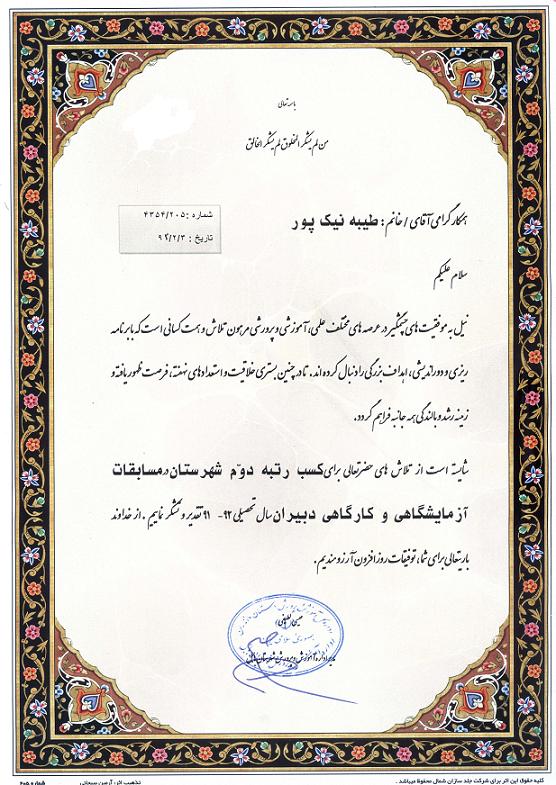 باسمه تعالی
من لم یشکر المخلوق لم یشکر الخالق
شماره : ۴۳۵۴/۲۰۵
تاریخ : ۹۲/۲/۳
همکار گرامی آقای / خانم : طیبه نیک پور
سلام علیکم
نیل به موفقیت های چشمگیر در عرصه های مختلف علمی، آموزشی و پرورشی مرهون تلاش و همت کسانی است که با برنامه
ریزی و دوراندیشی، اهداف بزرگی را دنبال کرده اند . تا در چنین بستری خلاقیت و استعدادهای نهفته، فرصت ظهور یافته و
زمینه رشد و بالندگی همه جانبه فراهم گردد.
شایسته است از تلاش های حضرتعالی برای کسب رتبه دوّم شهرستان در مسابقات
آزمایشگاهی و کارگاهی دبیران سال تحصیلی ۹۲- ۹۱ تقدیر و تشکر نماییم . از خداوند
باریتعالی برای شما، توفیقات روزافزون آرزومندیم .
مدیر اداره آموزش و پرورش شهرستان
کلیه حقوق این اثر برای شرکت جلد سازان شمال محفوظ میباشد .
تذهیب اثر: آرمین سبحانی
شماره ۲۰۵